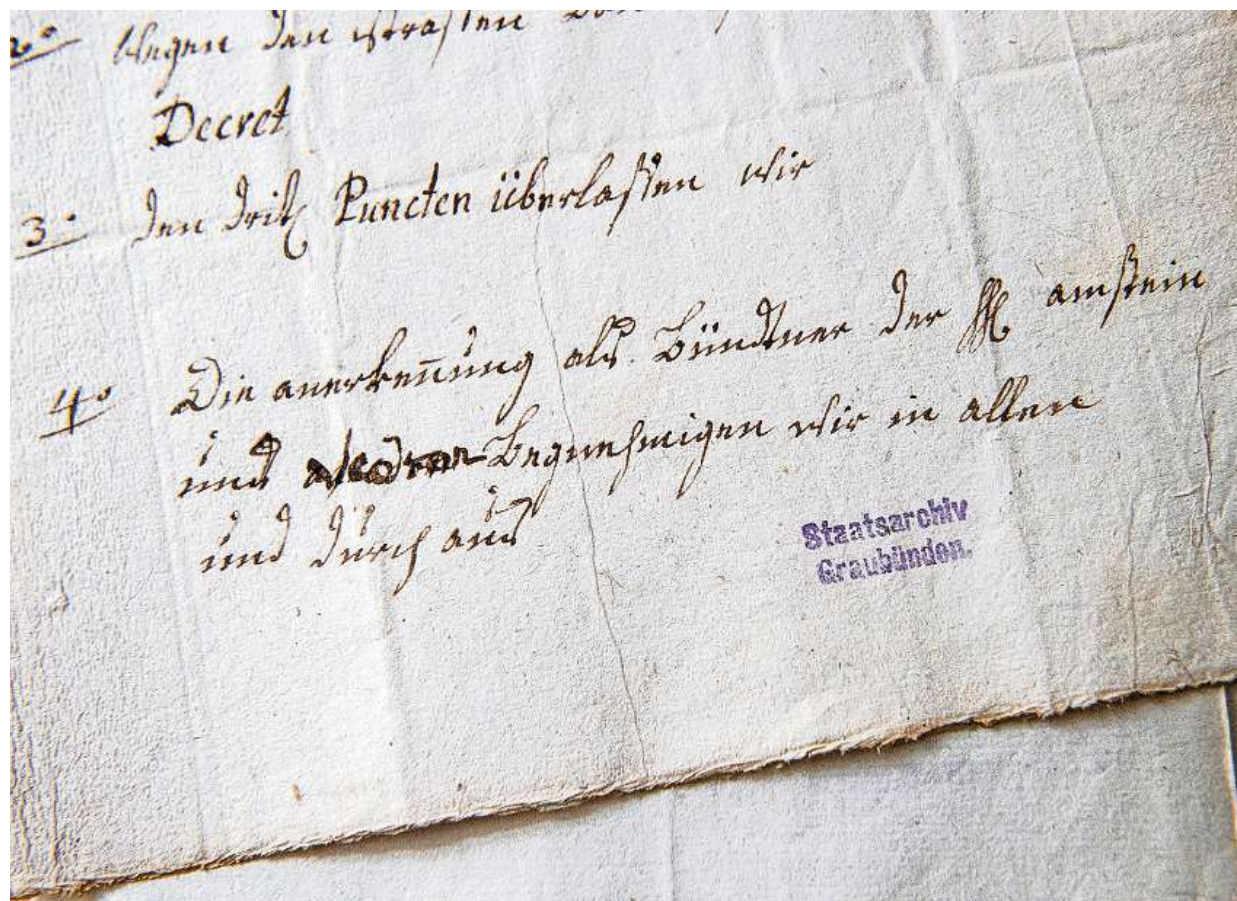 2° Wegen den Strassen
Decret
3° Den drit Puncten überlassen wir
4° Die anerkennung als Bündtner der HH amstein
und Begnehmigen wir in allen
und durch aus
Staatsarchiv
Graubünden.